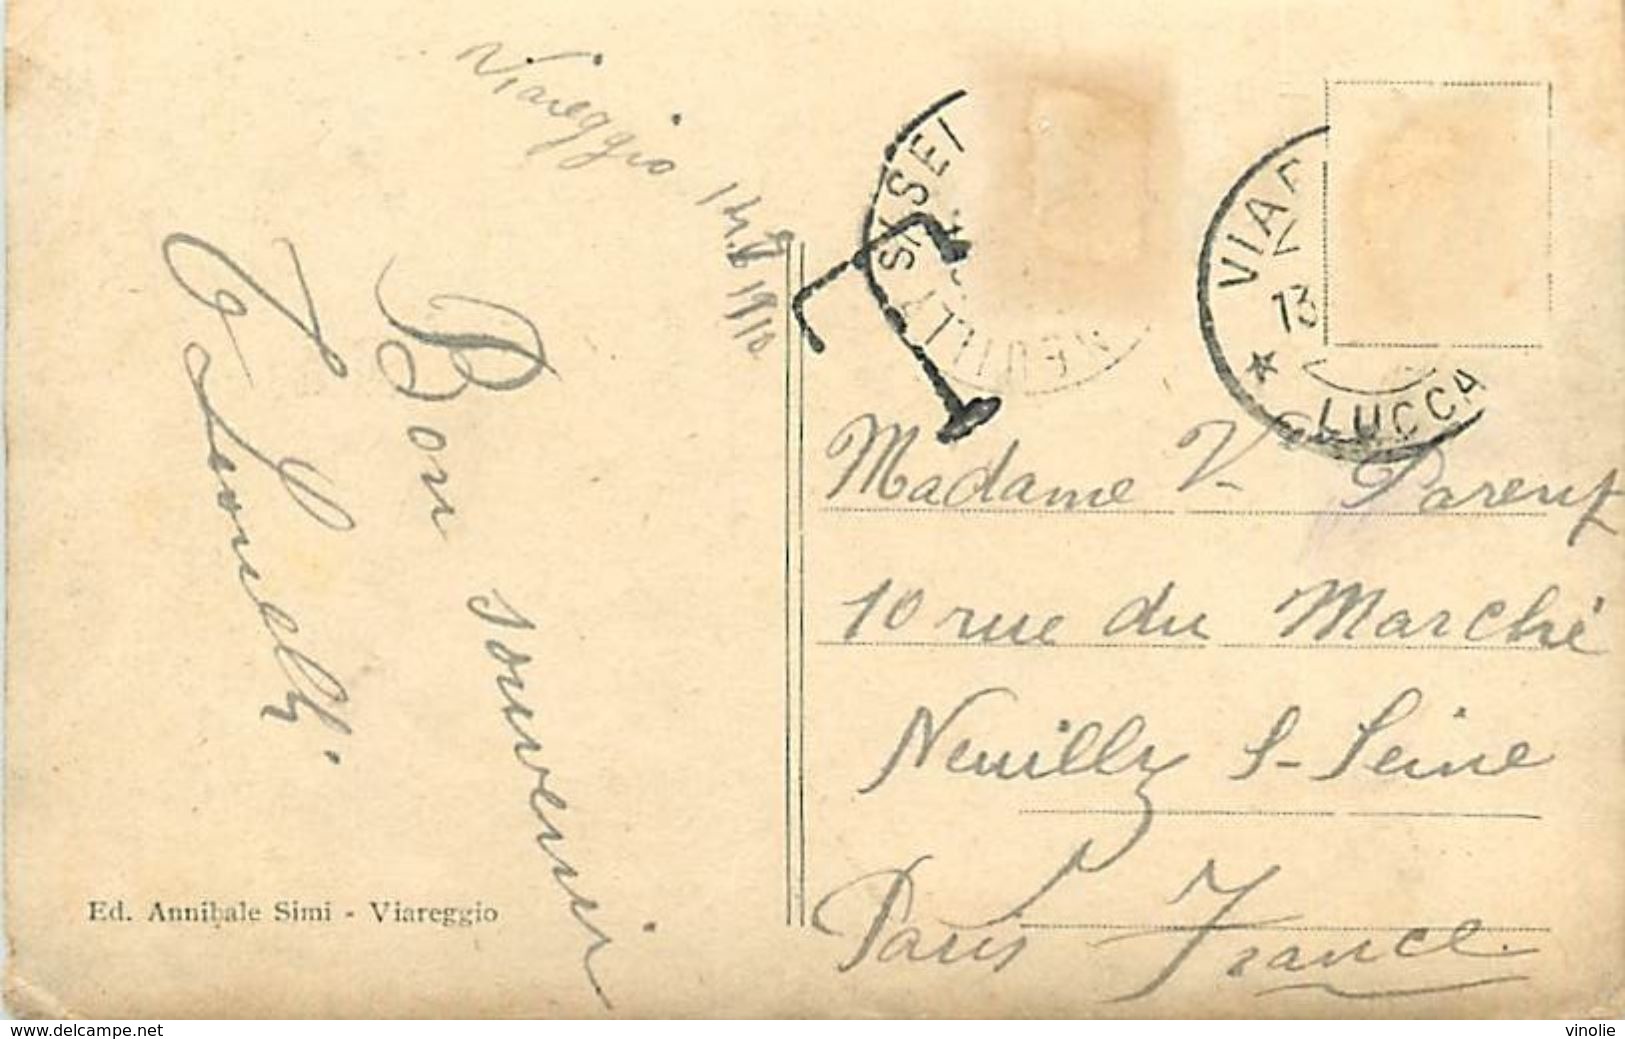 Viareggio 14.8 1910
Bon souvenir
Ed. Annibale Simi - Viareggio
NEUILLY S/SEI
VIAR
13
★ LUCCA
T
Madame V. Parent
10 rue du Marché
Neuilly S-Seine
Paris France
www.delcampe.net
vinolie